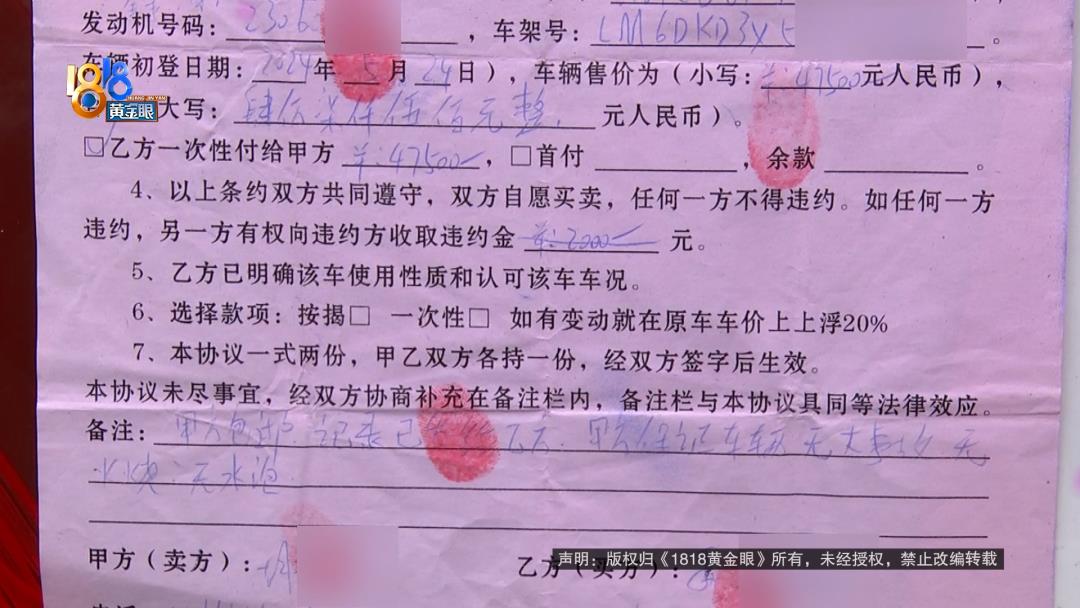 发动机号码：2306，车架号：LM6DKD3X5。
车辆初登日期：2024年5月24日），车辆售价为（小写：¥：47500元人民币），
大写：肆万柒仟伍佰元整．元人民币）。
☑乙方一次性付给甲方 ¥：47500，□首付，余款。
4、以上条约双方共同遵守，双方自愿买卖，任何一方不得违约。如任何一方
违约，另一方有权向违约方收取违约金 ¥：2000 元。
5、乙方已明确该车使用性质和认可该车车况。
6、选择款项：按揭□ 一次性□ 如有变动就在原车车价上上浮20%
7、本协议一式两份，甲乙双方各持一份，经双方签字后生效。
本协议未尽事宜，经双方协商补充在备注栏内，备注栏与本协议具同等法律效应。
备注：甲方 记录已 乙方．甲方保证车辆无大事故 无
火烧．无水泡
甲方（卖方）：
乙方（买方）：
1818黄金眼
声明：版权归《1818黄金眼》所有，未经授权，禁止改编转载